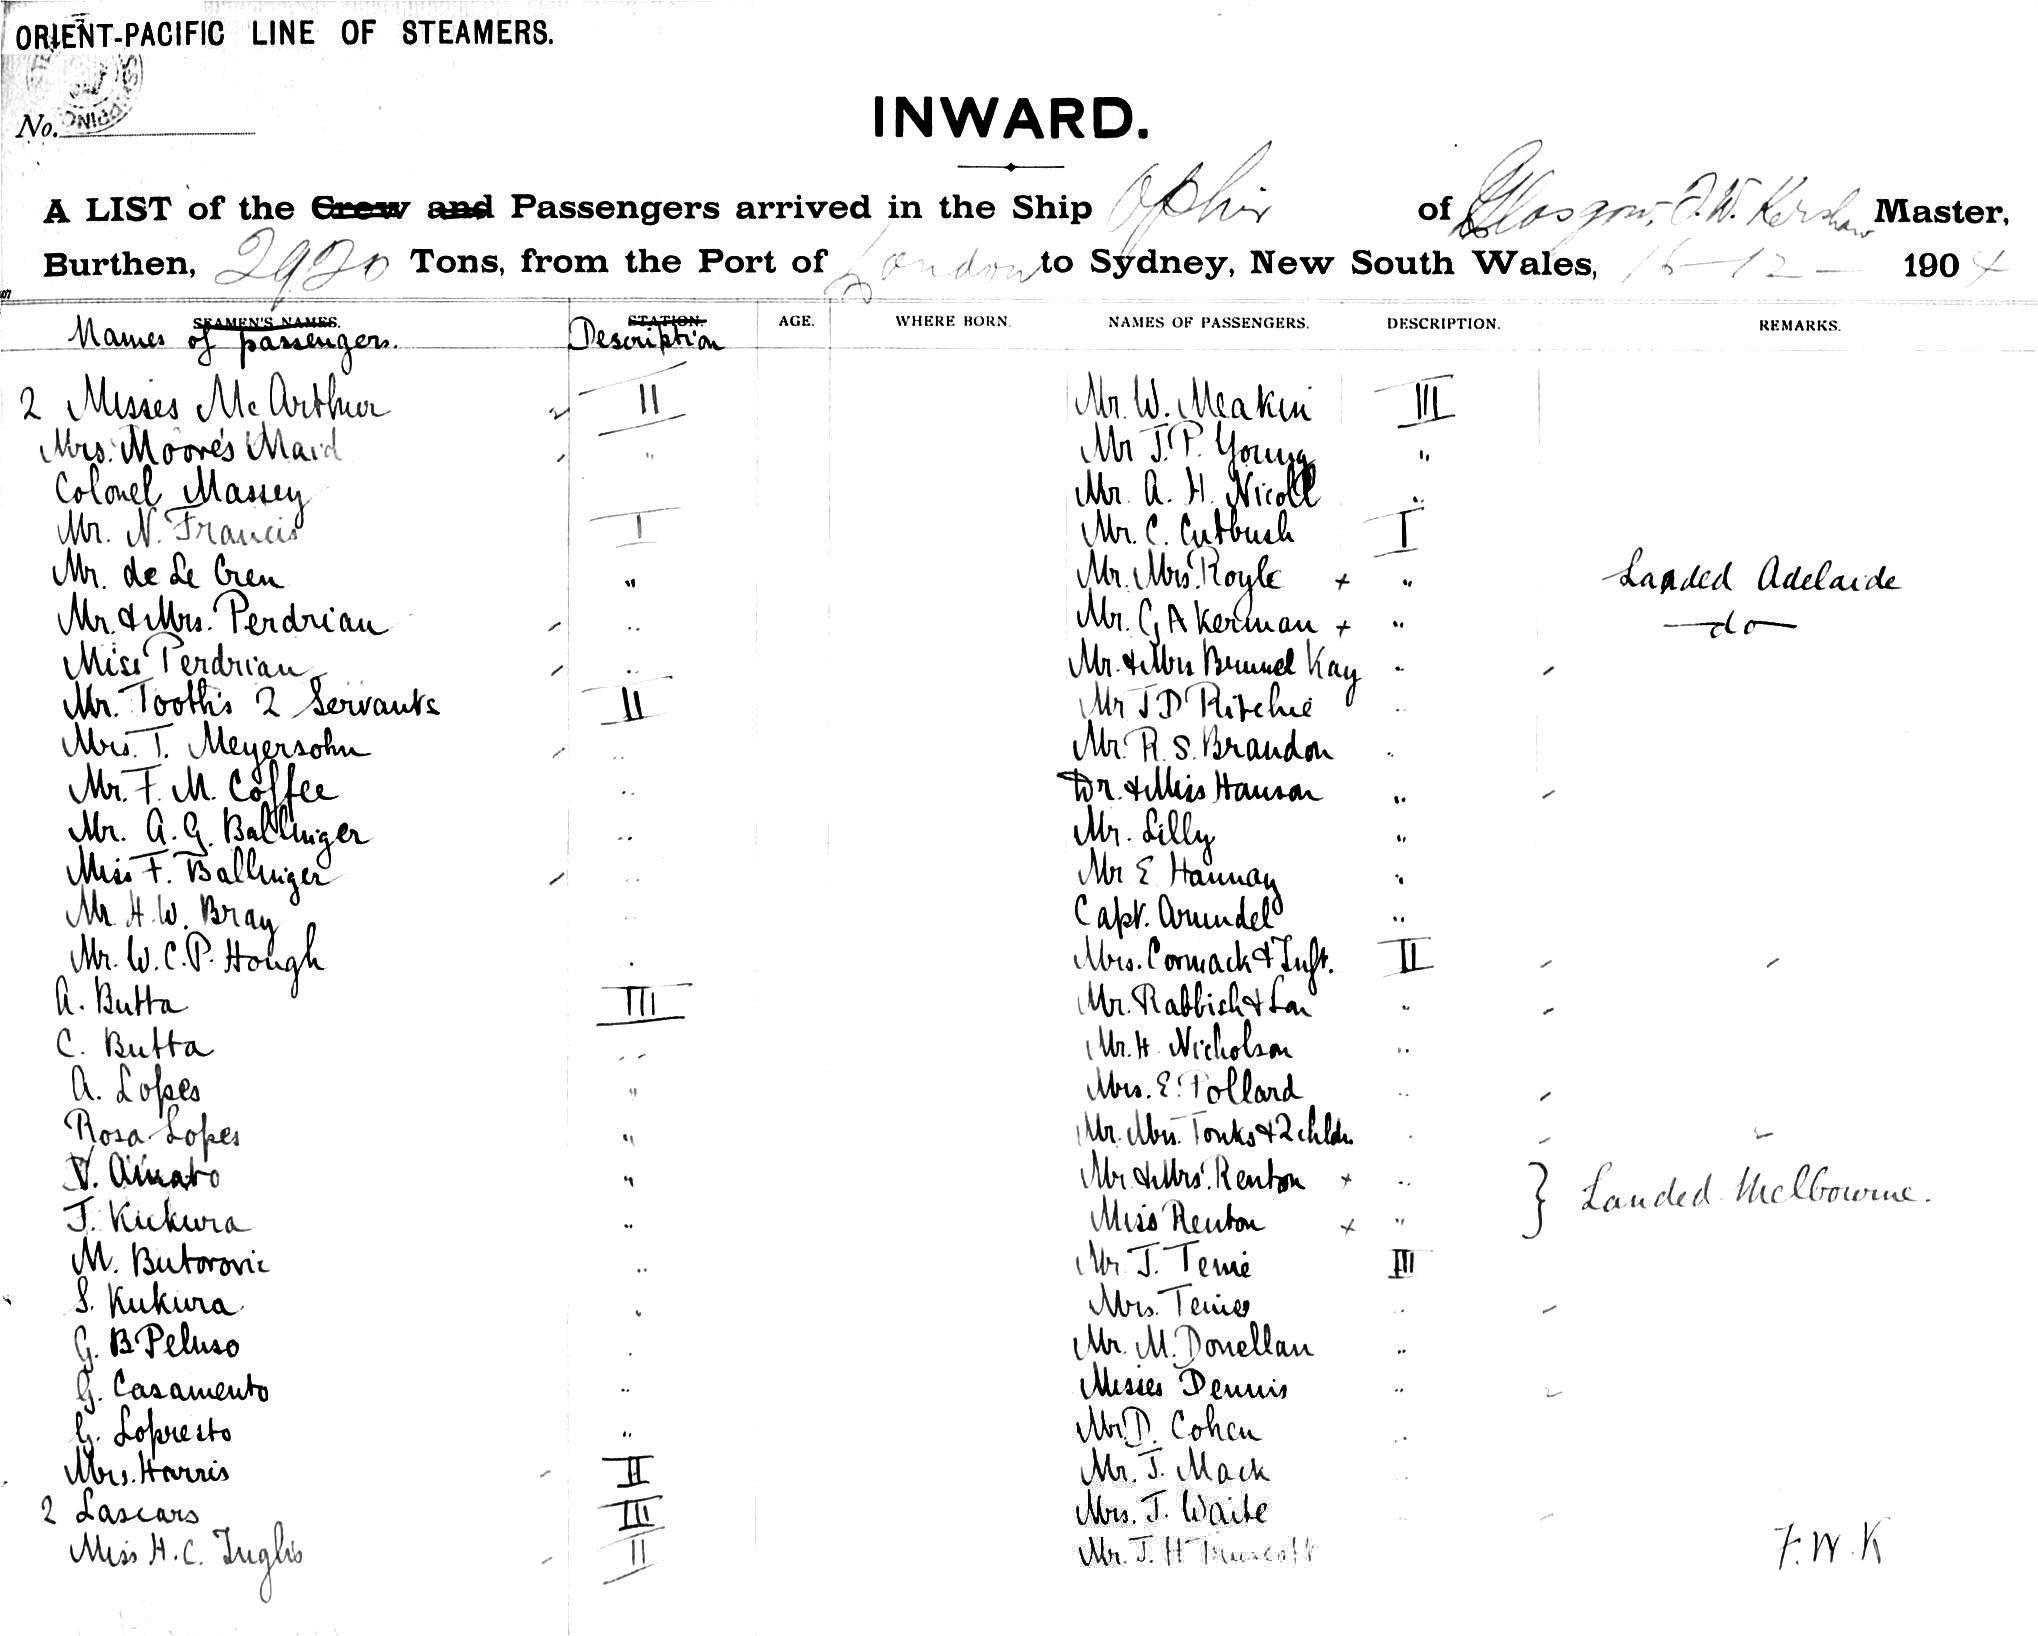 ORIENT-PACIFIC LINE OF STEAMERS.
No.
INWARD.
A LIST of the Crew and Passengers arrived in the Ship Ophir of Glasgow, F. W. Kershaw Master,
Burthen, 2920 Tons, from the Port of London to Sydney, New South Wales, 16-12- 1904
SEAMEN'S NAMES. STATION. AGE. WHERE BORN. NAMES OF PASSENGERS. DESCRIPTION. REMARKS.
Names of passengers. Description
2 Misses McArthur II Mr. W. Meakin III
Mrs. Moore's Maid " Mr J. P. Young "
Colonel Massey Mr. A. H. Nicoll "
Mr. N. Francis I Mr. C. Cutbush I
Mr. de Le Cren " Mr. Mrs. Royle + " Landed Adelaide
Mr. & Mrs. Perdriau " Mr. G Akerman + " do
Miss Perdriau " Mr. & Mrs Brunel Kay "
Mr. Tooth's 2 Servants II Mr J D Ritchie "
Mrs. T. Meyersohn " Mr. R. S. Brandon "
Mr. F. M. Coffee " Dr. & Miss Hanson "
Mr. A. G. Ballinger " Mr. Lilly "
Miss F. Ballinger " Mr E Hannay "
Mr H. W. Bray " Capt. Arundel "
Mr. W. C. P. Hough " Mrs. Cormack & Inft. II
A. Butta III Mr. Rabbish & Son "
C. Butta " Mr. H. Nicholson "
A. Lopes " Mrs. E. Pollard "
Rosa Lopes " Mr. Mrs. Tonks & 2 chldn "
V. Amato " Mr & Mrs. Renton + " } Landed Melbourne.
J. Kukura " Miss Renton + "
M. Butorovic " Mr. J. Teine III
S. Kukura " Mrs. Teine "
G. B Peluso " Mr. M. Donellan "
G. Casamento " Misses Dennis "
G. Lopresto " Mr. D. Cohen "
Mrs. Harris II Mr. J. Mack "
2 Lascars III Mrs. J. Waite
Miss H. C. Inglis II Mr. J. H Truscott F. W. K